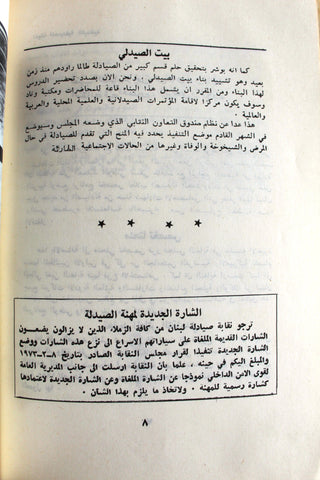 بيت الصيدلي
كما انه بوشر بتحقيق حلم قسم كبير من الصيادلة طالما راودهم منذ زمن
بعيد وهو تشييد بناء بيت الصيدلي . ونحن الان بصدد تحضير الدروس
لهذا البناء ومن المفرد ان يشمل هذا البناء قاعة للمحاضرات ومكتبة وناد
وسوف يكون مركزا لاقامة المؤتمرات الصيدلانية والعلمية المحلية والعربية
والعالمية .
هذا عدا عن نظام صندوق التعاون النقابي الذي وضعه المجلس وسيوضع
في الشهر القادم موضع التنفيذ يحدد فيه المنح التي تقدم للصيادلة في حال
المرض والشيخوخة والوفاة وغيرها من الحالات الاجتماعية الطارئة
* * * *
الشارة الجديدة لمهنة الصيدلة
نرجو نقابة صيادلة لبنان من كافة الزملاء الذين لا يزالون يضعون
الشارات القديمة الملغاة على سياراتهم الاسراع الى نزع هذه الشارات ووضع
الشارة الجديدة تنفيذا لقرار مجلس النقابة الصادر بتاريخ ٨-٣-١٩٧٣
والمبلغ اليكم في حينه ، علما بأن النقابة ارسلت الى جانب المديرية العامة
لقوى الامن الداخلي نموذجا عن الشارة الملغاة وعن الشارة الجديدة لاعتمادها
كشارة رسمية للمهنة . ولاتخاذ ما يلزم بهذا الشأن .
٨